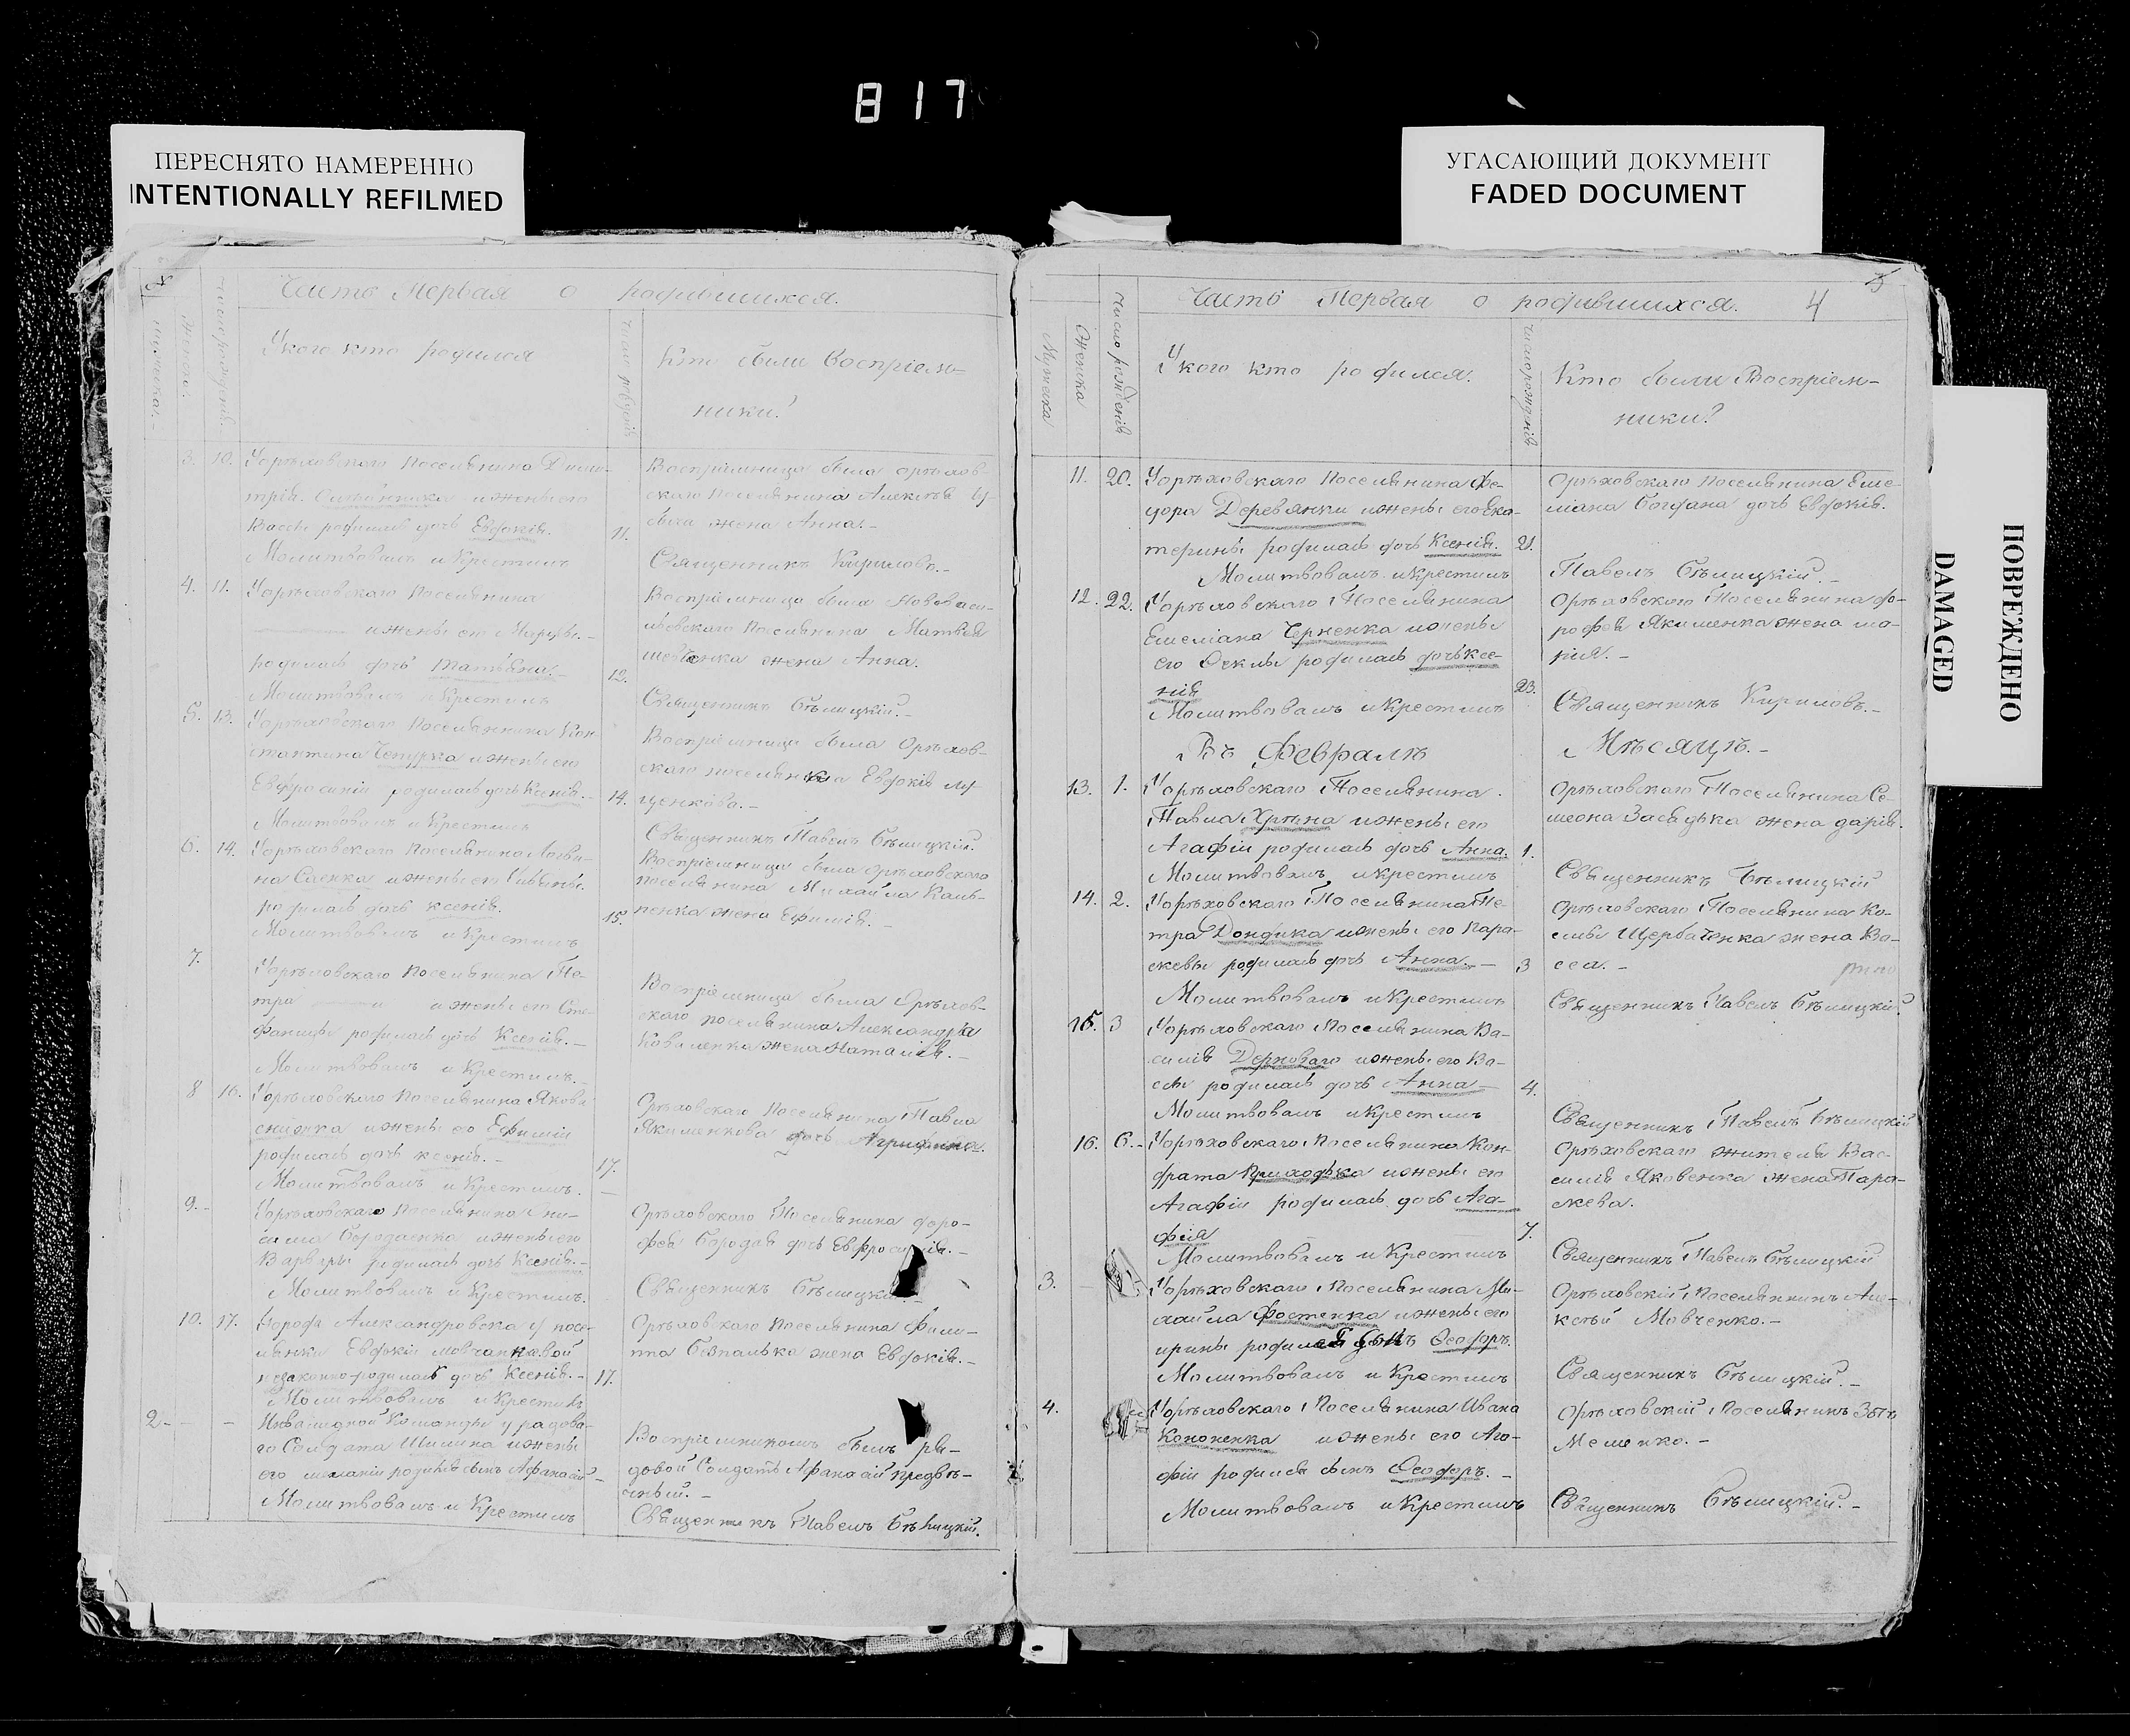 817
ПЕРЕСНЯТО НАМЕРЕННО
INTENTIONALLY REFILMED
УГАСАЮЩИЙ ДОКУМЕНТ
FADED DOCUMENT
ПОВРЕЖДЕНО
DAMAGED
Часть Первая о родившихся.
У кого кто родился
Кто были Воспріем-
ники?
3. 10. У орѣховскаго поселянина Дими-
трія и жены его
Вассы родилась дочь Евдокія.
Молитвовалъ и Крестилъ
11.
Воспріемница была орѣхов-
скаго поселянина Алексѣя
жена Анна.-
Священникъ Кириловъ.-
4. 11. У орѣховскаго Поселянина
и жены его Марѳы.-
родилась дочь Татьяна.-
Молитвовалъ и Крестилъ
12.
Воспріемница была Нововаси-
льевскаго Поселянина Матвѣя
Шевченка жена Анна.
Священникъ Бѣлицкій.-
5. 13. У орѣховскаго поселянина Кон-
стантина Чепурка и жены его
Евфросиніи родилась дочь Ксенія.-
Молитвовалъ и Крестилъ
14.
Воспріемница была Орѣхов-
скаго поселянина Евдокія Лу-
ценкова.-
Священникъ Павелъ Бѣлицкій.
6. 14. У орѣховскаго Поселянина Логви-
на Саенка и жены его
родилась дочь Ксенія.
Молитвовалъ и Крестилъ
15.
Воспріемница была орѣховскаго
поселянина Михайла Каль-
ченка жена Ефимія.-
7. У орѣховскаго Поселянина Пе-
тра и жены его Сте-
фаниды родилась дочь Ксенія.-
Молитвовалъ и Крестилъ.-
Воспріемница была Орѣхов-
скаго поселянина Александра
Коваленка жена Наталія.-
8 16. У орѣховскаго поселянина Якова
и жены его Ефиміи
родилась дочь Ксенія.-
Молитвовалъ и Крестилъ.
17.
Орѣховскаго Поселянина Павла
Якименкова дочь Агрифина.
9.- У орѣховскаго Поселянина Они-
сима Бородаенка и жены его
Варвары родилась дочь Ксенія.-
Молитвовалъ и Крестилъ.
Орѣховскаго Поселянина Доро-
фея Бородая дочь Евфросинія.-
Священникъ Бѣлицкій.-
10. 17. Города Александровска у посе-
лянки Евдокіи Мовчанкевой
незаконно родилась дочь Ксенія.-
Молитвовалъ и Крестилъ
17.
Орѣховскаго Поселянина Фили-
ппа Безпалька жена Евдокія.-
2.- - - Инвалидной Команды у рядова-
го Солдата Шилина и жены
его Меланіи родился сынъ Афанасій-
Молитвовалъ и Крестилъ
Воспріемникомъ былъ ря-
довой Солдатъ Афанасій
Священникъ Павелъ Бѣлицкій.
Часть Первая о родившихся. 4
Мужеска
Женска
Число рожденія
У кого кто родился.
Число рожденія
Кто были Воспріем-
ники?
11. 20. У орѣховскаго Поселянина Фе-
дора Деревянки и жены его Ека-
терины родилась дочь Ксенія.
Молитвовалъ и Крестилъ
21.
Орѣховскаго Поселянина Еме-
ліана Богдана дочь Евдокія.
Павелъ Бѣлицкій.-
12. 22. У орѣховскаго Поселянина
Емеліана Черненка и жены
его Феклы родилась дочь Ксе-
нія
Молитвовалъ и Крестилъ
23.
Орѣховскаго Поселянина До-
рофея Якименка жена Ма-
рія.-
Священникъ Кириловъ.-
Въ Февралѣ Мѣсяцѣ.-
13. 1. У орѣховскаго Поселянина
Павла Хрѣна и жены его
Агафіи родилась дочь Анна.
Молитвовалъ и крестилъ
1.
Орѣховскаго Поселянина Се-
меона Засядька жена Дарія.
Священникъ Бѣлицкій
14. 2. У орѣховскаго Поселянина Пе-
тра Дондика и жены его Пара-
скевы родилась дочь Анна.-
Молитвовалъ и Крестилъ
3
Орѣховскаго Поселянина Ко-
сьмы Щербаченка жена Ва-
сса.-
Священникъ Павелъ Бѣлицкій.
15. 3 У орѣховскаго Поселянина Ва-
силія Дерноваго и жены его Ва-
ссы родилась дочь Анна-
Молитвовалъ и Крестилъ
4.
Священникъ Павелъ Бѣлицкій
16. 6.- У орѣховскаго Поселянина Кон-
драта Приходька и жены его
Агафіи родилась дочь Ага-
фія
Молитвовалъ и Крестилъ
7.
Орѣховскаго жителя Вас-
силія Яковенка жена Пара-
скева.
Священникъ Павелъ Бѣлицкій
3. - У орѣховскаго Поселянина Ми-
хайла Фостенка и жены его
Ирины родился сынъ Ѳеодоръ.
Молитвовалъ и Крестилъ
Орѣховскій Поселянинъ Але-
ксѣй Мовченко.-
Священникъ Бѣлицкій.-
4. У орѣховскаго Поселянина Ивана
Кононенка и жены его Ага-
фіи родился сынъ Ѳеодоръ.-
Молитвовалъ и Крестилъ
Орѣховскій Поселянинъ
Священникъ Бѣлицкій.-